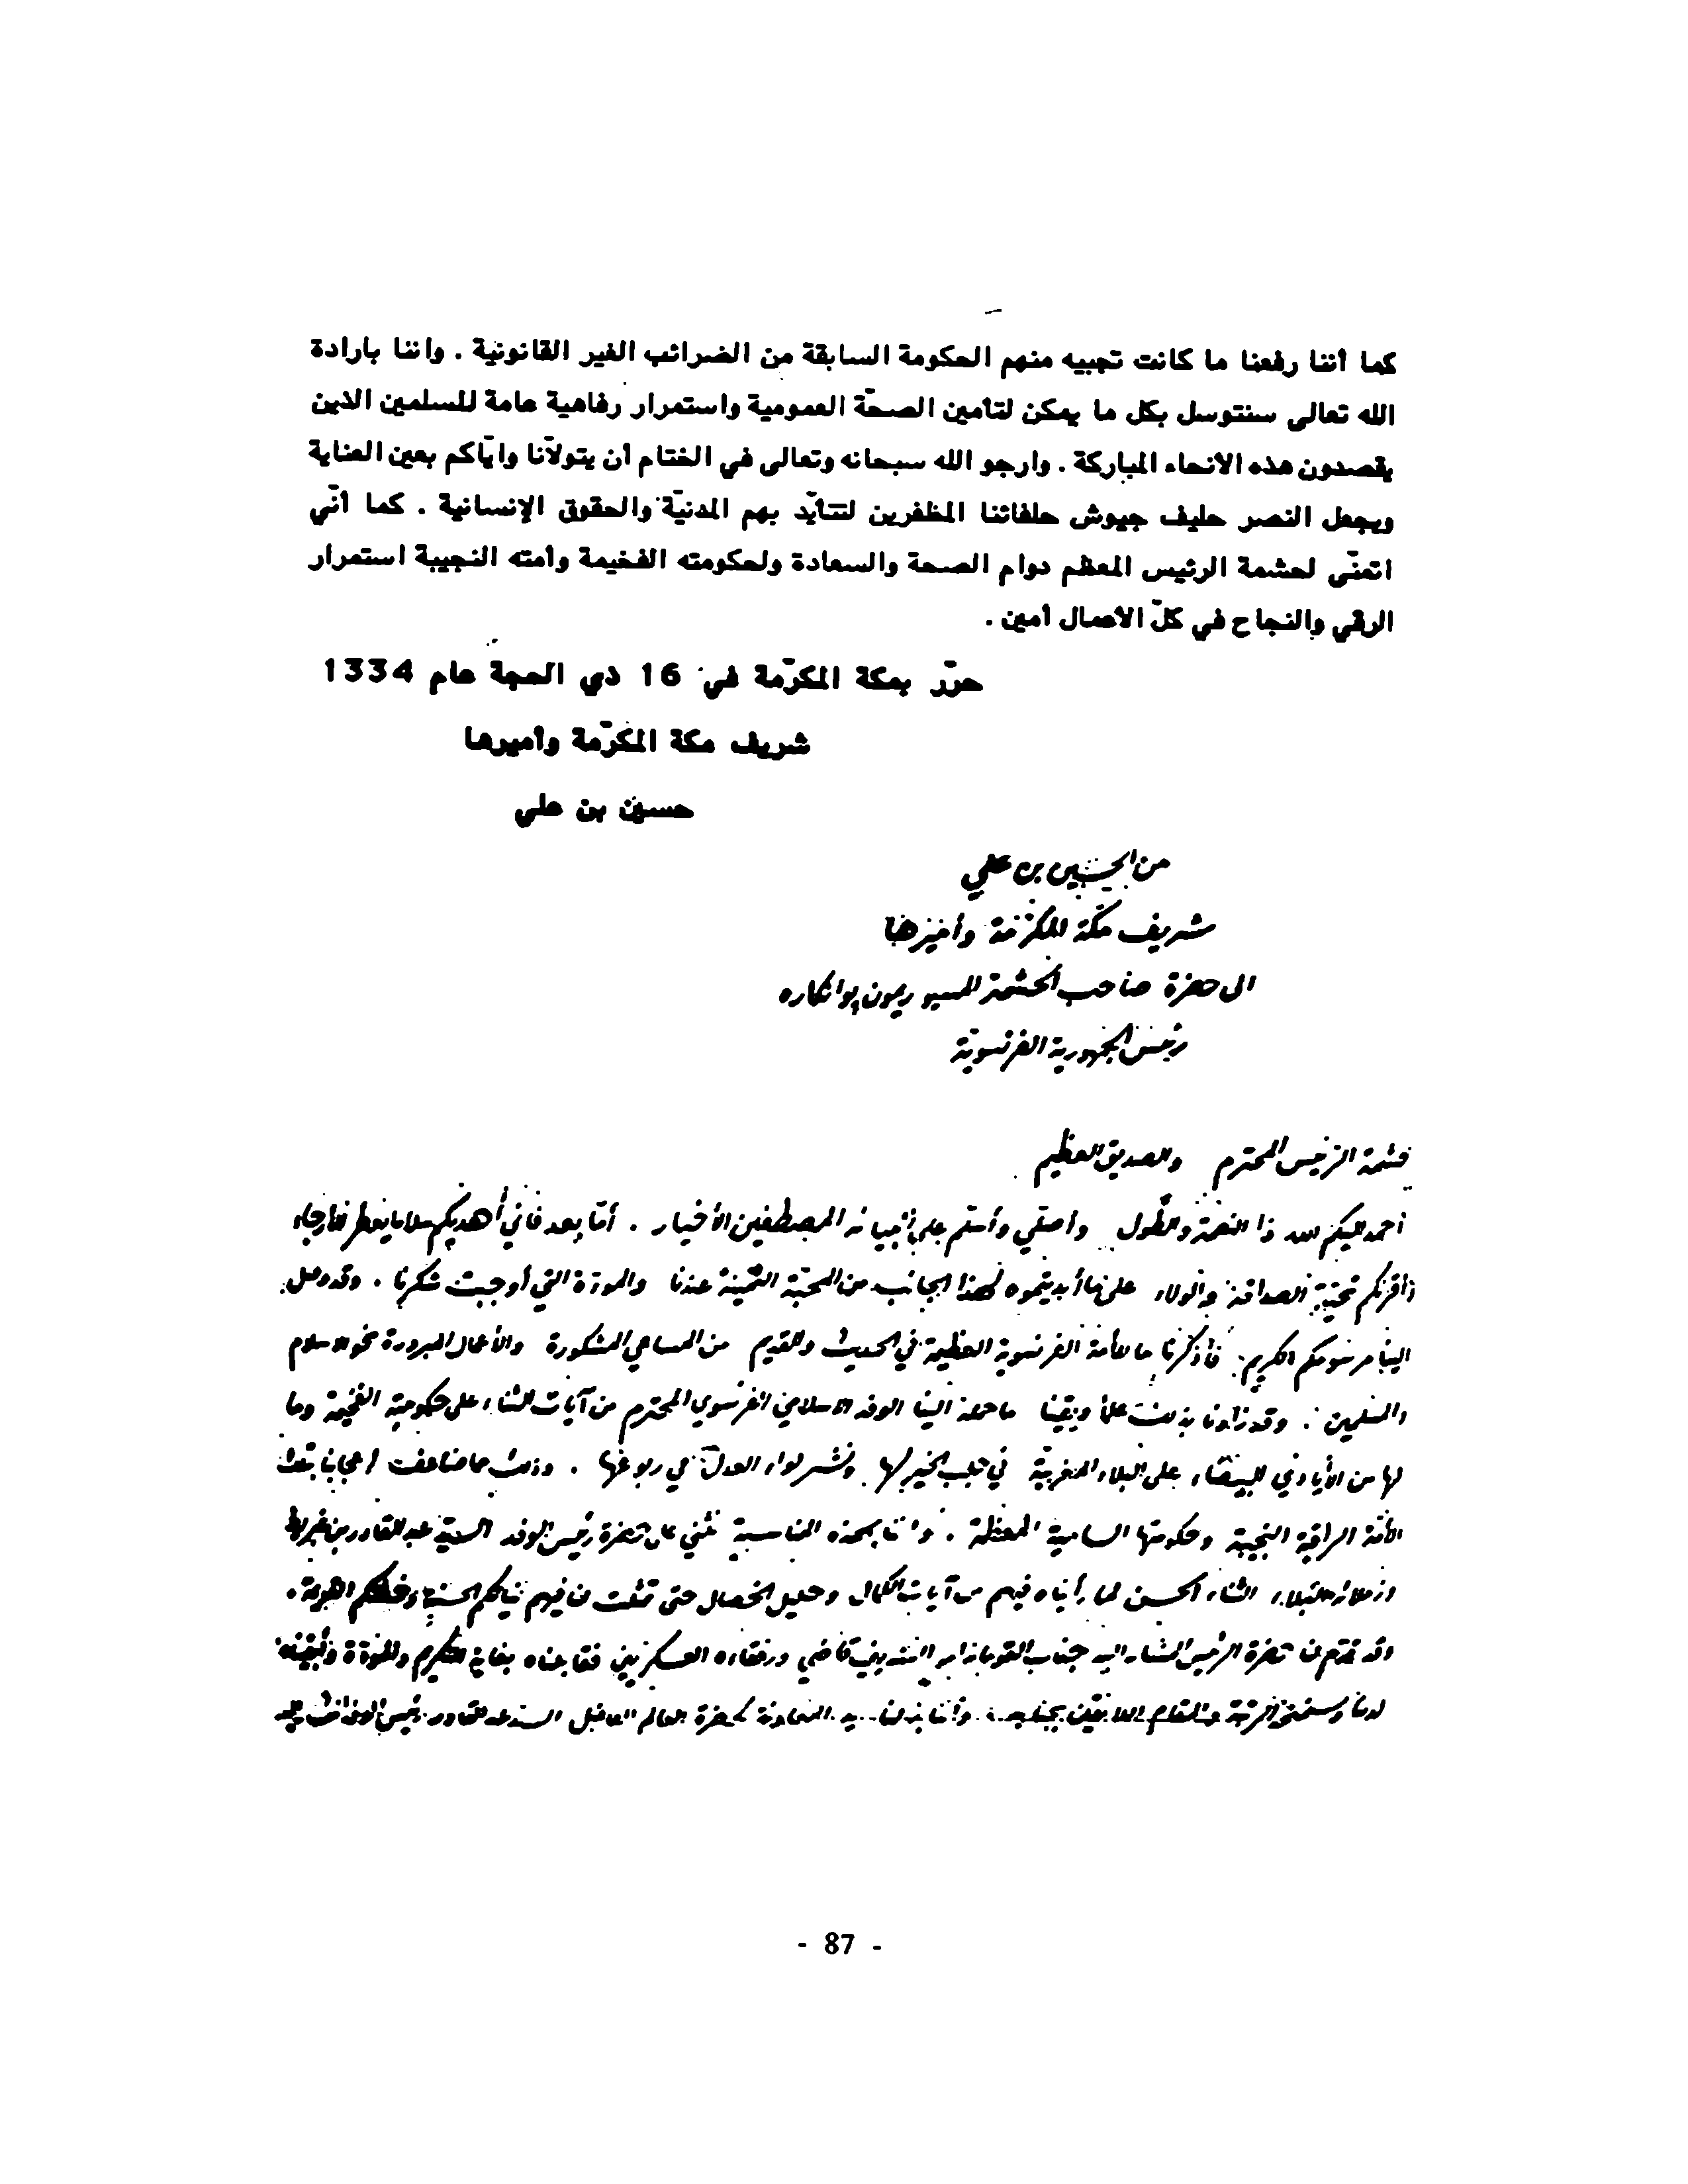 كما أننا رفعنا ما كانت تجبيه منهم الحكومة السابقة من الضرائب الغير القانونية . واننا بارادة
الله تعالى سنتوسل بكل ما يمكن لتأمين الصحّة العمومية واستمرار رفاهية عامة للمسلمين الذين
يقصدون هذه الانحاء المباركة . وارجو الله سبحانه وتعالى في الختام أن يتولاّنا وايّاكم بعين العناية
ويجعل النصر حليف جيوش حلفائنا المظفرين لتتأيّد بهم المدنيّة والحقوق الإنسانية . كما أنّي
اتمنّى لحشمة الرئيس المعظم دوام الصحة والسعادة ولحكومته الفخيمة وأمته النجيبة استمرار
الرقي والنجاح في كلّ الأعمال أمين .
حرّر بمكة المكرّمة في 16 ذي الحجة عام 1334
شريف مكة المكرّمة وأميرها
حسين بن علي
من الحسين بن علي
شريف مكّة المكرّمة وأميرها
الى حضرة صاحب الحشمة المسيو ريمون پوانكاره
رئيس الجمهورية الفرنسويّة
حشمة الرئيس المحترم والصديق العظيم
أحمد اليكم الله ذا النعمة والطول وأصلّي وأسلّم على أنبيائه المصطفين الأخيار . أمّا بعد فاني أهديكم سلاما يعطر الأرجاء
وأقرئكم تحيّة الصداقة والولاء على ما أبديتموه لهذا الجانب من المحبّة الثمينة عندنا والمودّة التي أوجبت شكرنا . وقد وصل
الينا مرسومكم الكريم . فأذكرنا ما للأمة الفرنسوية العظيمة في الحديث والقديم من المساعي المشكورة والأعمال المبرورة نحو الاسلام
والمسلمين . وقد زادنا بذلك علمًا ويقينا ما حمله الينا الوفد الاسلامي الفرنسوي المحترم من آيات الثناء على حكومته الفخيمة وما
لها من الأيادي البيضاء على البلاد المغربيّة في جلب الخير لها ونشر لواء العدل في ربوعها . وذلك مما ضاعف اعجابنا بتلك
الأمّة الراقية النجيبة وحكومتها الساميّة المعظمة . وانّا بهذه المناسبة نثني على حضرة رئيس الوفد السيّد عبد القادر بن غبريط
وزملائه النبلاء الثناء الحسن لما رأيناه فيهم من آيات الكمال وجليل الخصال حتى تمثّلت لنا فيهم نياتكم الحسنة
وقد قدّم لنا حضرة الرئيس المشار اليه جناب القومانداه ورفقاءه العسكريين فقابلناه بغاية التكريم والمودّة
لدينا حضرة العالم الفاضل السيد عبد القادر رئيس الوفد
- 87 -